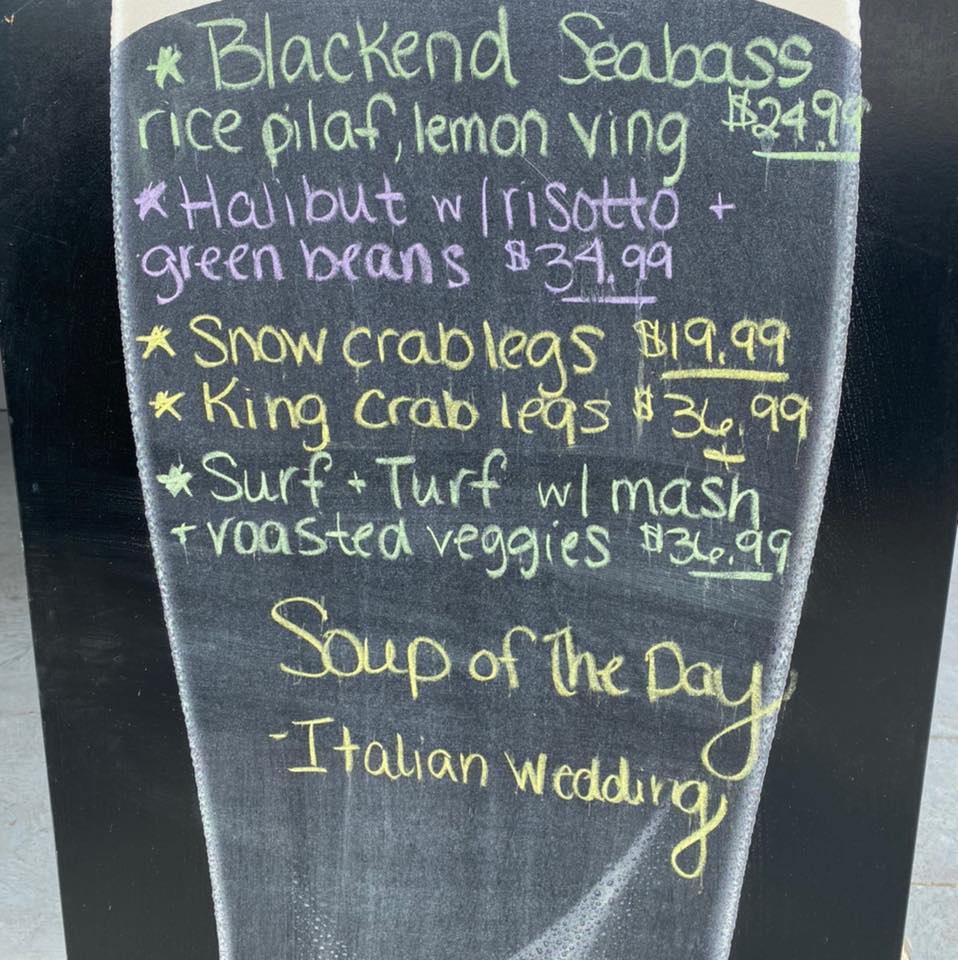 * Blackend Seabass
rice pilaf, lemon ving $24.99
* Halibut w/ risotto +
green beans $34.99
* Snow crab legs $19.99
* King Crab legs $36.99
* Surf + Turf w/ mash
+ roasted veggies $36.99
Soup of The Day
- Italian Wedding